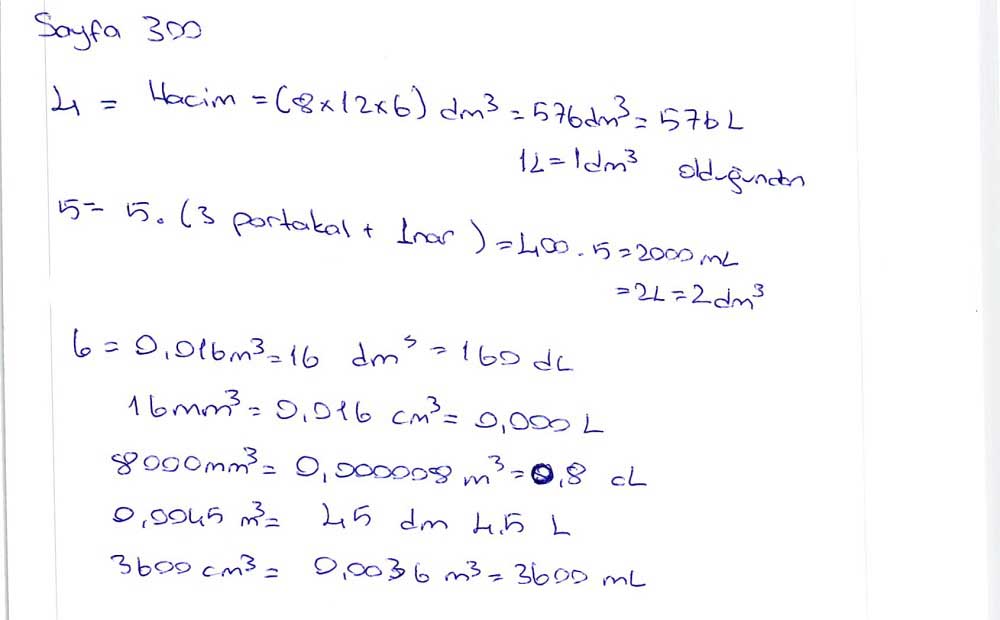 Sayfa 300
4 = Hacim = (8x12x6) dm³ = 576dm³ = 576 L
1L = 1dm³ olduğundan
5 = 5. (3 portakal + 1nar) = 400 . 5 = 2000 mL
= 2L = 2dm³
6 = 0,016m³ = 16 dm³ = 160 dL
16mm³ = 0,016 cm³ = 0,000 L
8000mm³ = 0,000008 m³ = 0,8 cL
0,0045 m³ = 45 dm 4,5 L
3600 cm³ = 0,0036 m³ = 3600 mL